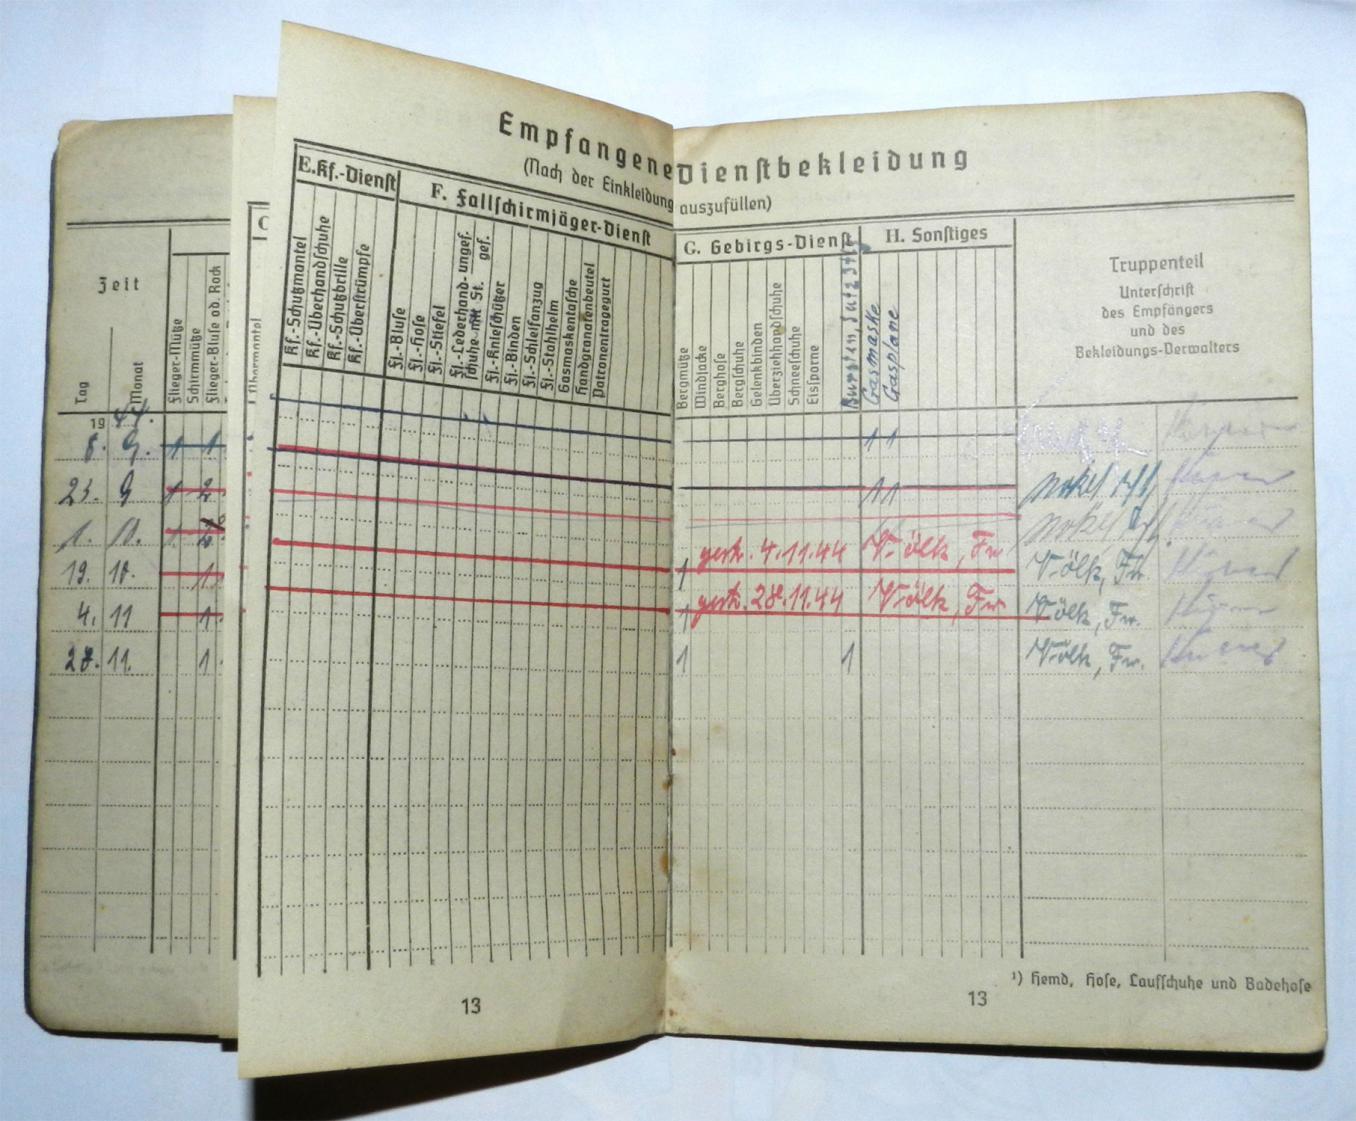 Empfangene Dienstbekleidung
(Nach der Einkleidung auszufüllen)
Zeit
Tag
Monat
Flieger-Mütze
Schirmmütze
Flieger-Bluse od. Rock
E. Kf.-Dienst
Kf.-Schutzmantel
Kf.-Überhandschuhe
Kf.-Schutzbrille
Kf.-Überstrümpfe
F. Fallschirmjäger-Dienst
Fj.-Bluse
Fj.-Hose
Fj.-Stiefel
Fj.-Lederhand- ungef.
schuhe mit St. gef.
Fj.-Knieschützer
Fj.-Binden
Fj.-Schleifanzug
Fj.-Stahlhelm
Gasmaskentasche
Handgranatenbeutel
Patronentragegurt
G. Gebirgs-Dienst
Bergmütze
Windjacke
Berghose
Bergschuhe
Gelenkbinden
Überziehhandschuhe
Schneeschuhe
Eissporne
H. Sonstiges
Gasmaske
Gasplane
Truppenteil
Unterschrift
des Empfängers
und des
Bekleidungs-Verwalters
1944.
8. 9. 1 1 1 1
23. 9 1 2 1 1
1. 11.
19. 10. 1 1 gestr. 4.11.44 Völk, Fw. Völk, Fw.
4. 11 1 1 gestr. 28.11.44 Völk, Fw. Völk, Fw.
28. 11. 1 1 1 Völk, Fw.
¹) Hemd, Hose, Laufschuhe und Badehose
13
13